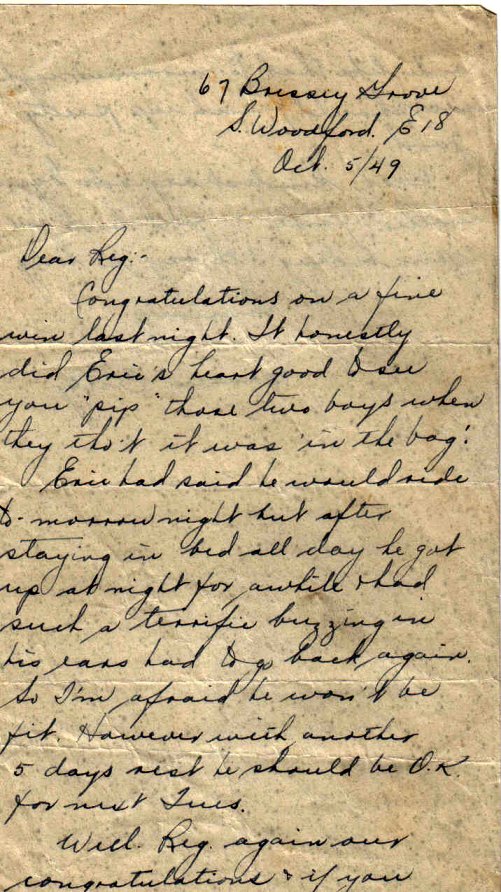 67 Bressey Grove
S. Woodford. E18
Oct. 5/49
Dear Reg:-
Congratulations on a fine
win last night. It honestly
did Eric's heart good to see
you "pip" those two boys when
they tho't it was in the bag!
Eric had said he would ride
to-morrow night but after
staying in bed all day he got
up at night for awhile & had
such a terrific buzzing in
his ears had to go back again.
So I'm afraid he won't be
fit. However with another
5 days rest he should be O.K.
for next Tues.
Well. Reg. again our
congratulations & if you